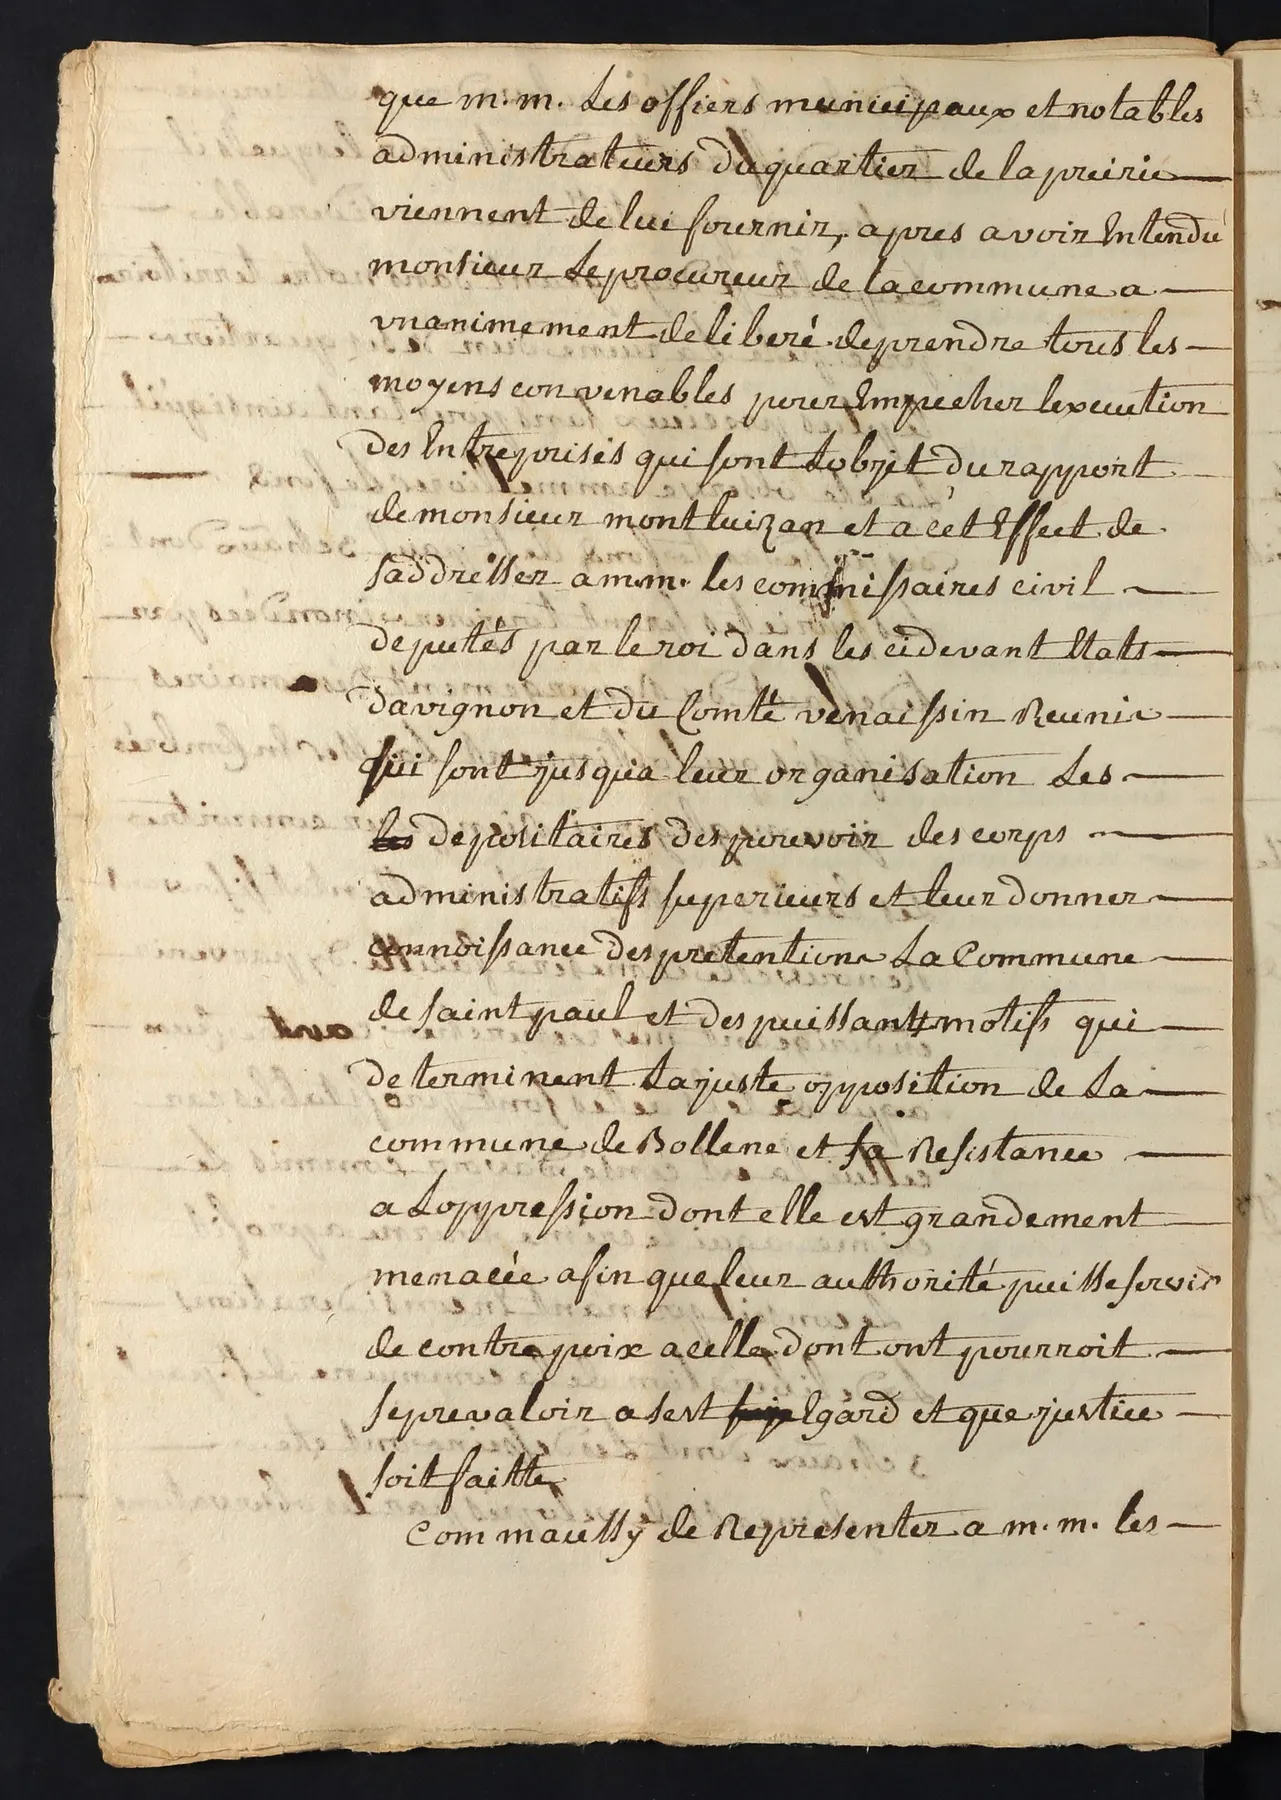 que m. m. Les offiers municipaux et notables
administrateurs du quartier de la preirie
viennent de lui fournir, apres avoir Entendu
monsieur Le procureur de la commune a
vnanimement deliberé de prendre tous les
moyens convenables pour Empecher lexecution
des Entreprises qui sont Lobjet du rapport
de monsieur montluizan et a cet Effect de
saddresser a m.m. les commissaires civil
deputés par le roi dans les cidevant Etats
davignon et du Comté venaissin Reunis
qui sont jusqua leur organisation Les
les depositaires des pouvoir des corps
administratifs superieurs et leur donner
connoissance des pretentions La Commune
de saint paul et des puissants motifs qui
determinent La juste opposition de La
commune de Bollene et sa Resistance
a Loppression dont elle est grandement
menacée afin que leur authorité puisse servir
de contre poix a celle dont ont pourroit
se prevaloir a sest Egard et que justice
soit faitte
Comm aussy de Representer a m. m. les